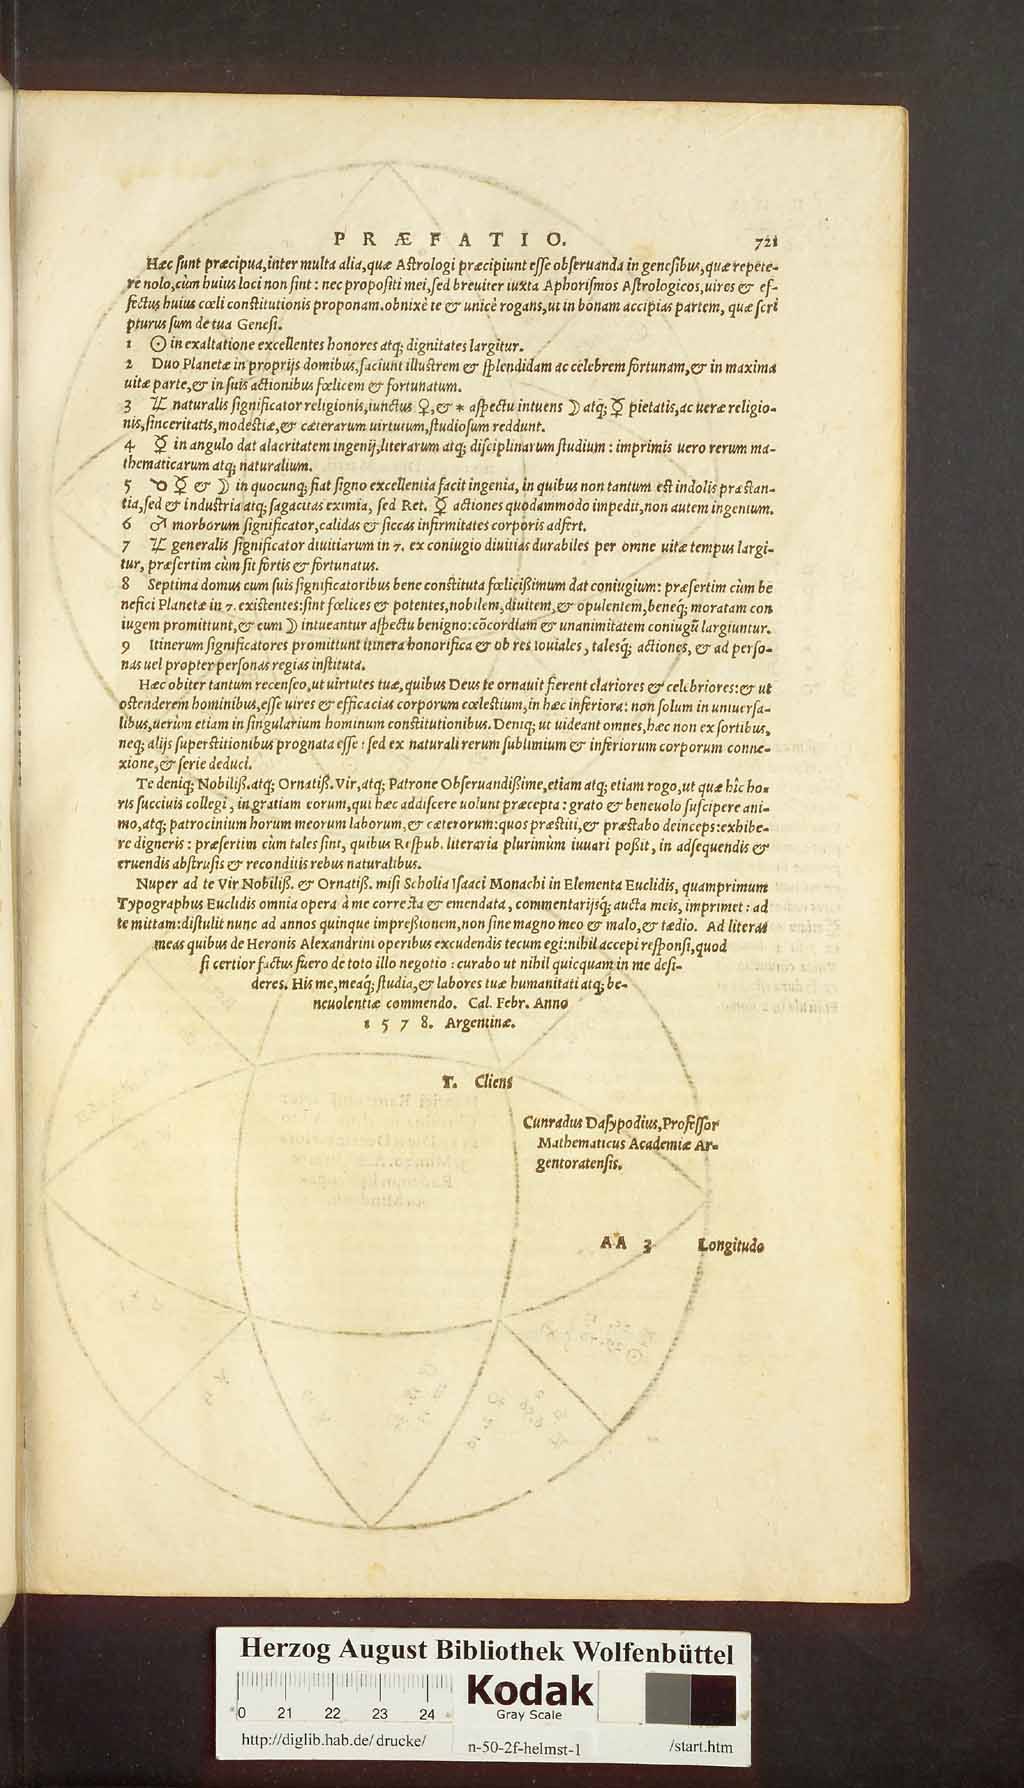 PRÆFATIO. 721
Hæc sunt præcipua,inter multa alia,quæ Astrologi præcipiunt esse obseruanda in genesibus,quæ repete-
re nolo,cùm huius loci non sint : nec propositi mei,sed breuiter iuxta Aphorismos Astrologicos,uires & ef-
fectus huius cœli constitutionis proponam.obnixè te & unicè rogans,ut in bonam accipias partem, quæ scri
pturus sum de tua Genesi.
1 ☉ in exaltatione excellentes honores atq; dignitates largitur.
2 Duo Planetæ in proprijs domibus,faciunt illustrem & splendidam ac celebrem fortunam,& in maxima
uitæ parte,& in suis actionibus fœlicem & fortunatum.
3 ♃ naturalis significator religionis,iunctus ♀,& * aspectu intuens ☽ atq; ☿ pietatis,ac ueræ religio-
nis,sinceritatis,modestiæ,& cæterarum uirtutum,studiosum reddunt.
4 ☿ in angulo dat alacritatem ingenij,literarum atq; disciplinarum studium : imprimis uero rerum ma-
thematicarum atq; naturalium.
5 ☌ ☿ & ☽ in quocunq; fiat signo excellentia facit ingenia, in quibus non tantum est indolis præstan-
tia,sed & industria atq; sagacitas eximia, sed Ret. ☿ actiones quodammodo impedit,non autem ingenium.
6 ♂ morborum significator,calidas & siccas infirmitates corporis adfert.
7 ♃ generalis significator diuitiarum in 7. ex coniugio diuitias durabiles per omne uitæ tempus largi-
tur, præsertim cùm sit fortis & fortunatus.
8 Septima domus cum suis significatoribus bene constituta fœlicißimum dat coniugium: præsertim cùm be
nefici Planetæ in 7. existentes:sint fœlices & potentes,nobilem,diuitem,& opulentem,beneq; moratam con
iugem promittunt,& cum ☽ intueantur aspectu benigno:cōcordiam & unanimitatem coniugū largiuntur.
9 Itinerum significatores promittunt itinera honorifica & ob res iouiales, talesq́; actiones, & ad perso-
nas uel propter personas regias instituta.
Hæc obiter tantum recenseo,ut uirtutes tuæ,quibus Deus te ornauit fierent clariores & celebriores:& ut
ostenderem hominibus,esse uires & efficacias corporum cœlestium,in hæc inferiora: non solum in uniuersa-
libus,uerùm etiam in singularium hominum constitutionibus. Deniq; ut uideant omnes,hæc non ex sortibus,
neq; alijs superstitionibus prognata esse : sed ex naturali rerum sublimium & inferiorum corporum conne-
xione,& serie deduci.
Te deniq; Nobiliß.atq; Ornatiß.Vir,atq; Patrone Obseruandißime,etiam atq; etiam rogo,ut quæ hîc ho-
ris succiuis collegi, in gratiam eorum,qui hæc addiscere uolunt præcepta : grato & beneuolo suscipere ani-
mo,atq; patrocinium horum meorum laborum,& cæterorum:quos præstiti,& præstabo deinceps:exhibe-
re digneris : præsertim cùm tales sint, quibus Respub. literaria plurimùm iuuari poßit, in adsequendis &
eruendis abstrusis & reconditis rebus naturalibus.
Nuper ad te Vir Nobiliß. & Ornatiß. misi Scholia Isaaci Monachi in Elementa Euclidis, quamprimum
Typographus Euclidis omnia opera à me correcta & emendata, commentarijsq́; aucta meis, imprimet : ad
te mittam:distulit nunc ad annos quinque impreßionem,non sine magno meo & malo,& tædio. Ad literas
meas quibus de Heronis Alexandrini operibus excudendis tecum egi:nihil accepi responsi,quod
si certior factus fuero de toto illo negotio : curabo ut nihil quicquam in me desi-
deres. His me,meaq; studia,& labores tuæ humanitati atq; be-
neuolentiæ commendo. Cal. Febr. Anno
1 5 7 8. Argentinæ.
T. Cliens
Cunradus Dasypodius,Professor
Mathematicus Academiæ Ar-
gentoratensis.
AA 3 Longitudo
Herzog August Bibliothek Wolfenbüttel
Kodak
Gray Scale
0 21 22 23 24
http://diglib.hab.de/drucke/ n-50-2f-helmst-1 /start.htm